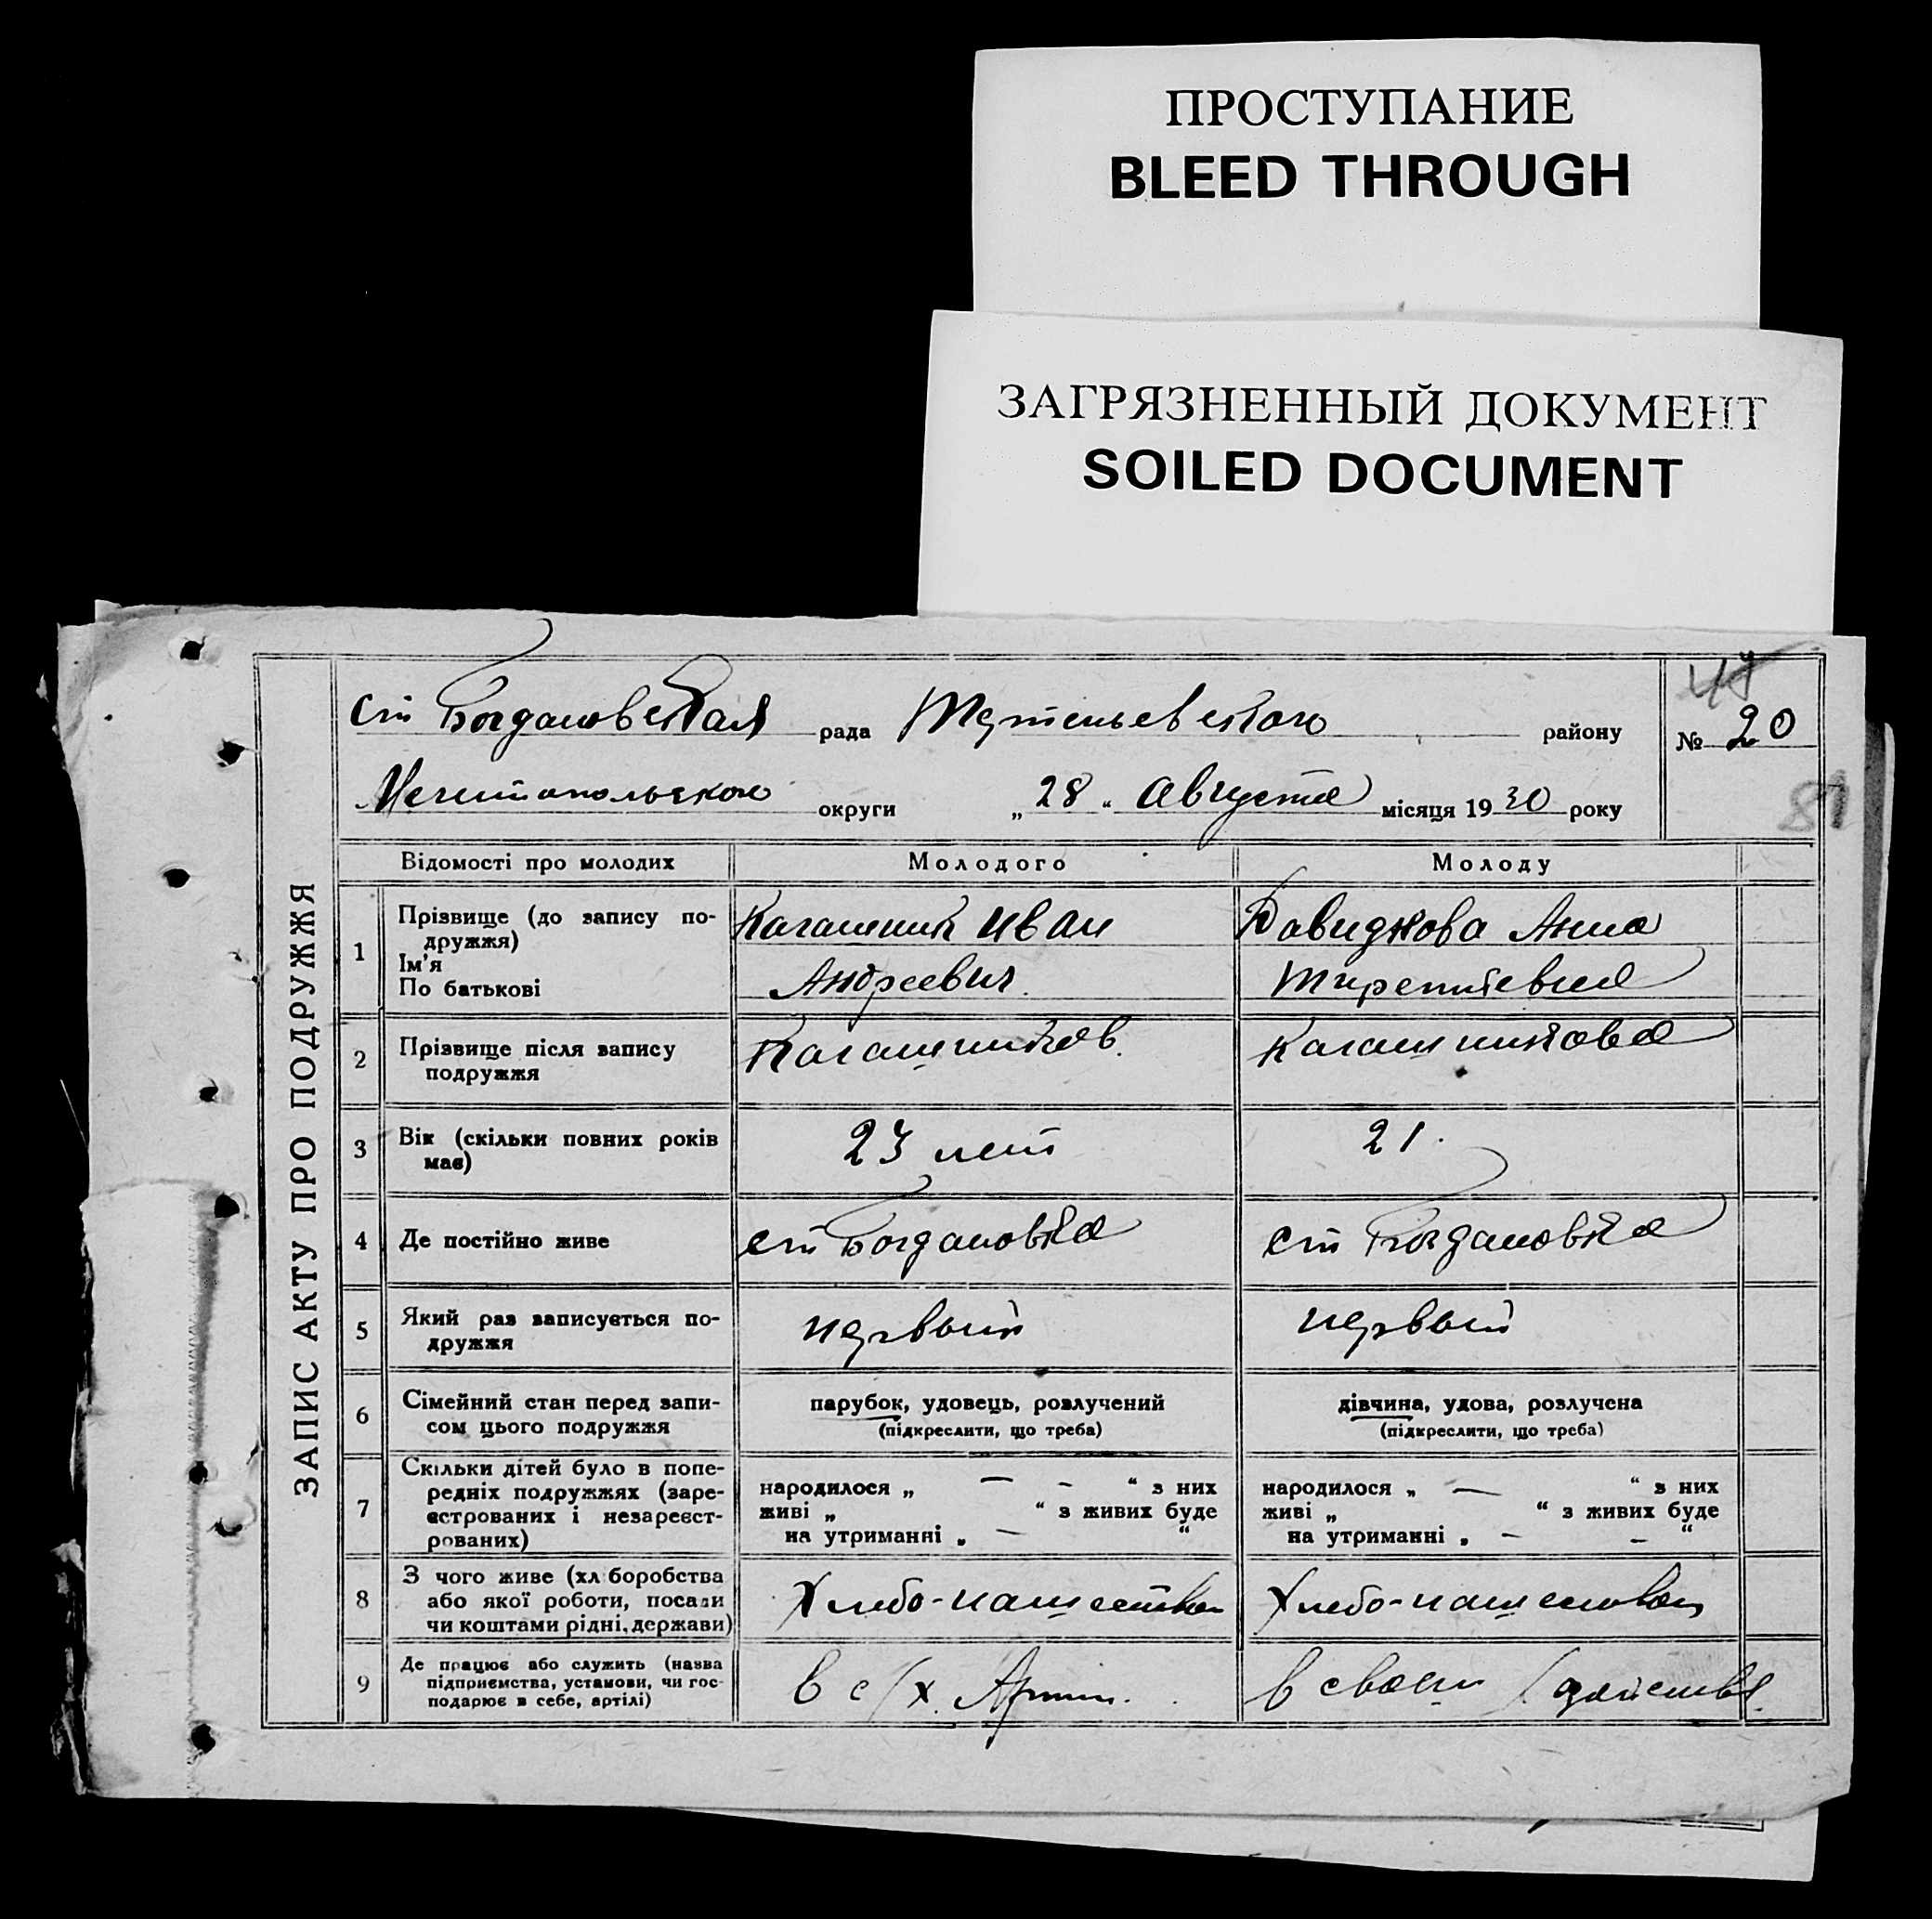 ПРОСТУПАНИЕ
BLEED THROUGH
ЗАГРЯЗНЕННЫЙ ДОКУМЕНТ
SOILED DOCUMENT
ЗАПИС АКТУ ПРО ПОДРУЖЖЯ
ст Богдановская рада району
№ 20
Мелитопольского округи „ 28 “ Августа місяця 1930 року
81
Відомості про молодих Молодого Молоду
1 Прізвище (до запису подружжя)
Ім'я
По батькові
Иван
Андреевич
Давидкова Анна
2 Прізвище після запису
подружжя
Калашников.
Калашникова
3 Вік (скільки повних років
має)
23 лет
21.
4 Де постійно живе
ст Богдановка
ст Богдановка
5 Який раз записується подружжя
первый
первый
6 Сімейний стан перед записом цього подружжя
парубок, удовець, розлучений
(підкреслити, що треба)
дівчина, удова, розлучена
(підкреслити, що треба)
7 Скільки дітей було в попередніх подружжях (зареєстрованих і незареєстрованих)
народилося „ — – “ з них
живі „ “ з живих буде
на утриманні „ — “
народилося „ — “ з них
живі „ “ з живих буде
на утриманні „ – – “
8 З чого живе (хліборобства
або якої роботи, посади
чи коштами рідні, держави)
9 Де працює або служить (назва
підприємства, установи, чи господарює в себе, артілі)
в с/х. Артел.
в своем